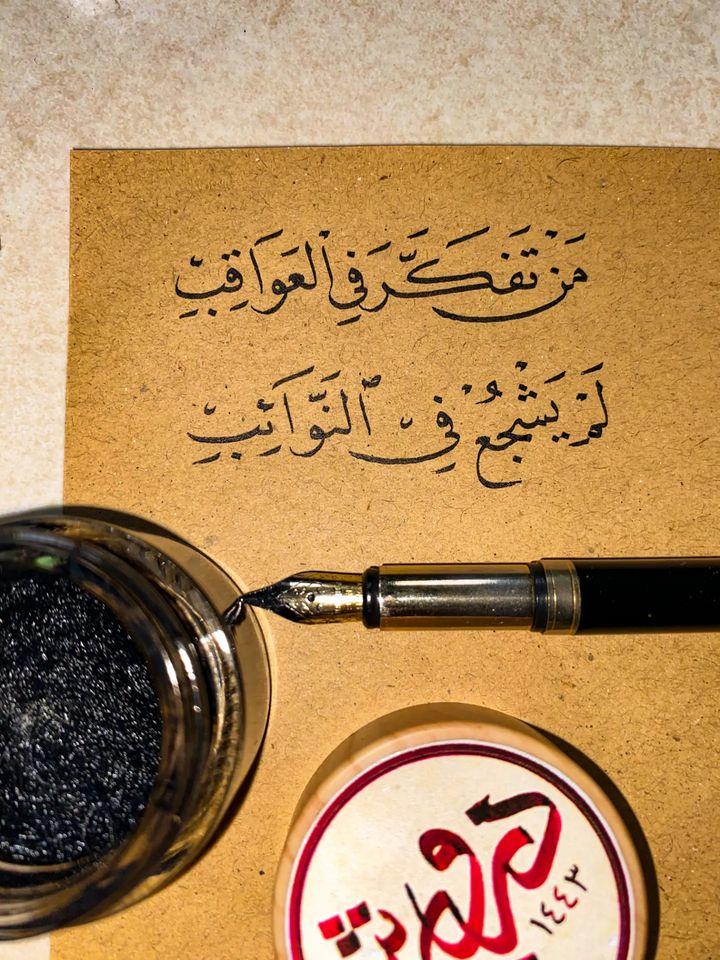 مَنْ تَفَكَّرَ فِي الْعَوَاقِبِ
لَمْ يَشْجُعْ فِي ٱلنَّوَائِبِ
١٤٤٣